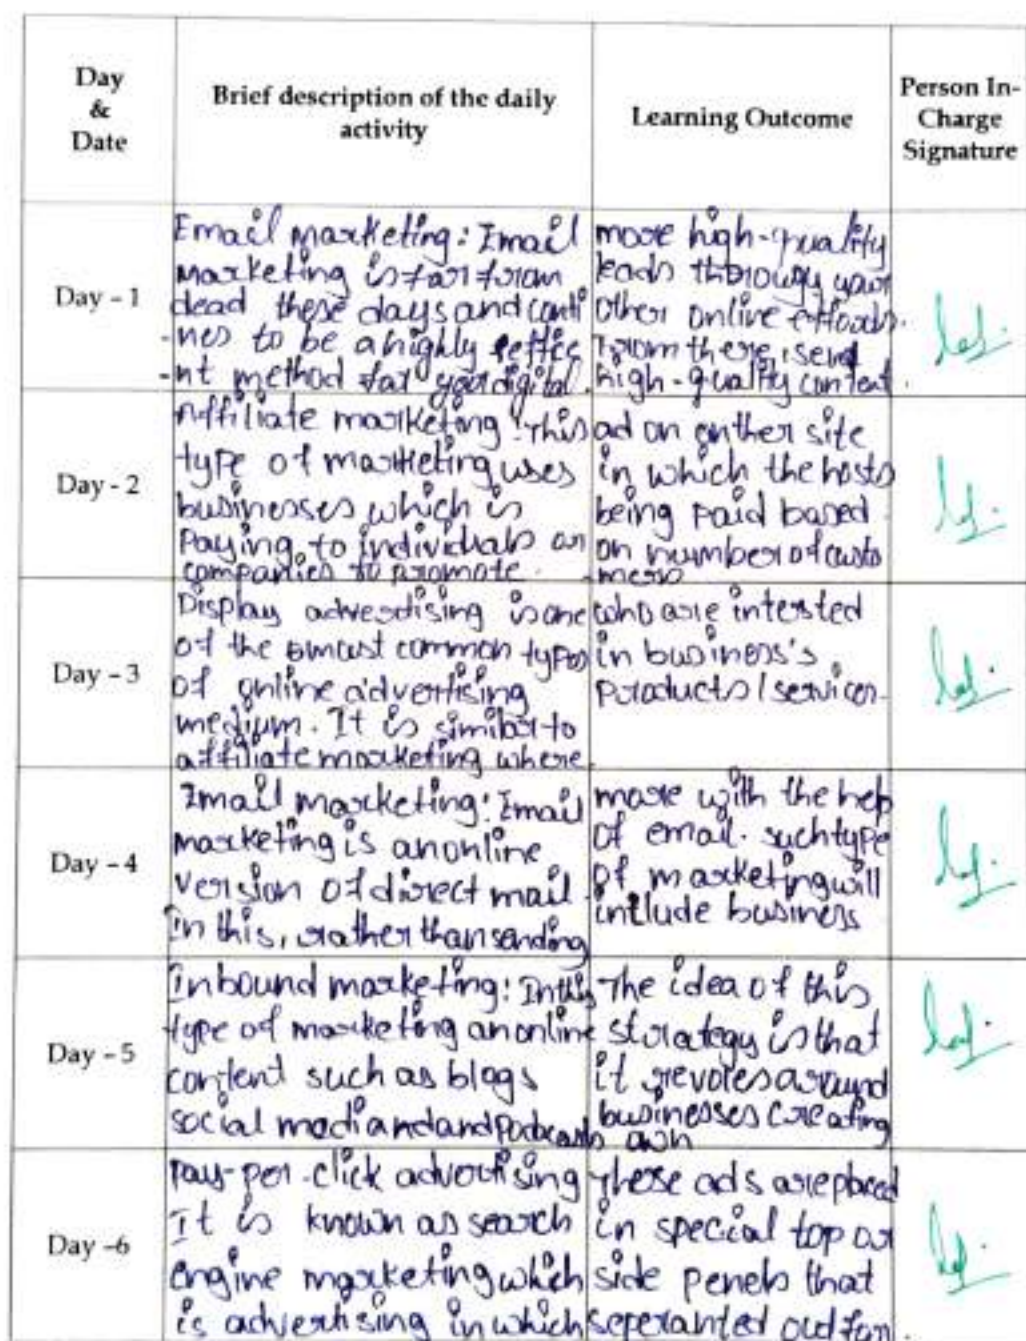 Day
&
Date
Brief description of the daily
activity
Learning Outcome
Person In-
Charge
Signature
Day - 1
Email marketing: Email
marketing is far from
dead these days and conti
-nes to be a highly effice
-nt method for your digital.
more high-quality
leads through your
other online efforts.
From there, send
high-quality content.
Day - 2
Affiliate marketing: This
type of marketing uses
businesses which is
Paying to individuals or
companies to promote.
ad on onther site
in which the hosts
being paid based
on number of custo
-mers
Day - 3
Display advertising is one
of the omost common types
of online advertising
medium. It is similar to
affiliate marketing where.
who are intersted
in business's
products / services.
Day - 4
Email marketing: Email
marketing is an online
version of direct mail.
In this, rather than sending
more with the help
of email. such type
of marketing will
include business
Day - 5
Inbound marketing: In this
type of marketing an online
content such as blogs
social media and and Podcasts
The idea of this
strategy is that
it revoles around
businesses creating
own
Day -6
Pay-per-click advertising
It is known as search
engine marketing which
is advertising in which
These ads are placed
in special top or
side penels that
seperanted out for.